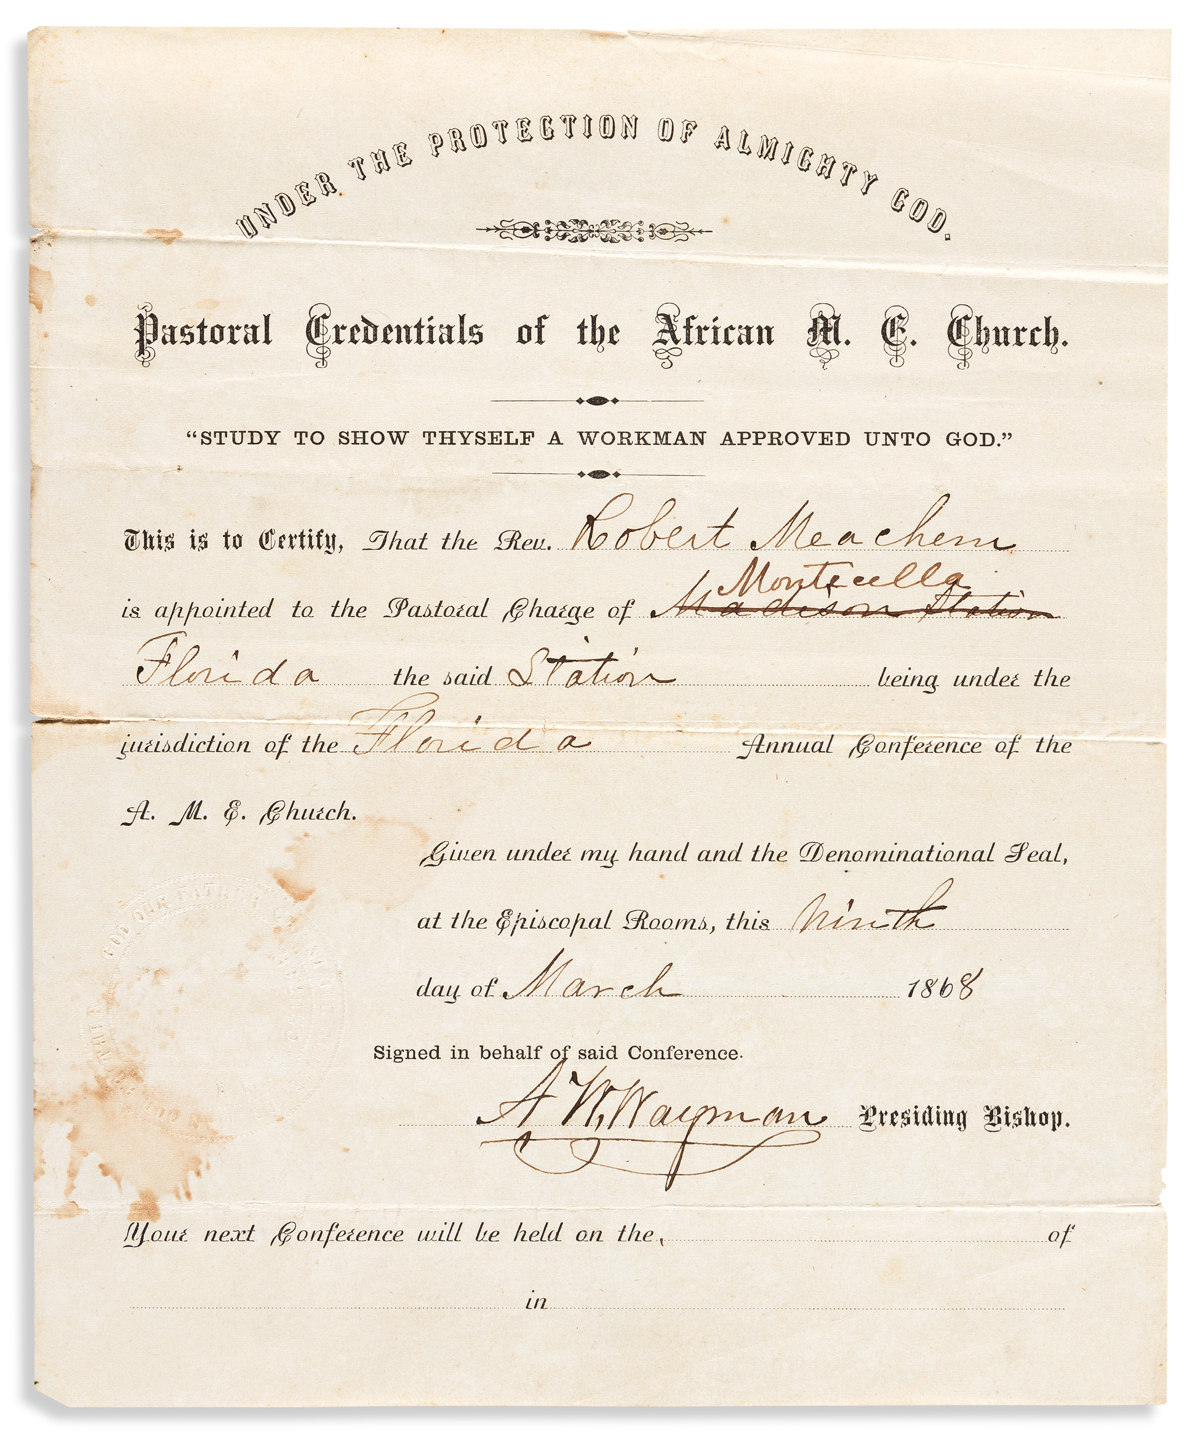 UNDER THE PROTECTION OF ALMIGHTY GOD.
Pastoral Credentials of the African M. E. Church.
“STUDY TO SHOW THYSELF A WORKMAN APPROVED UNTO GOD.”
This is to Certify, That the Rev. Robert Meachem
Monticella
is appointed to the Pastoral Charge of Madison Station
Florida the said Station being under the
jurisdiction of the Florida Annual Conference of the
A. M. E. Church.
Given under my hand and the Denominational Seal,
at the Episcopal Rooms, this Ninth
day of March 1868
Signed in behalf of said Conference.
A W. Wayman Presiding Bishop.
Your next Conference will be held on the, of
in